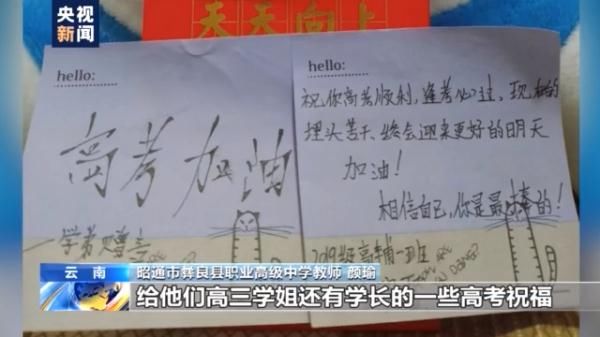 央视
新闻
天天向上
hello:
高考加油
hello:
祝你高考顺利，逢考必过、现在的
埋头苦干、终会迎来更好的明天
加油！
相信自己，你是最棒的！
云南
昭通市彝良县职业高级中学教师 颜瑜
给他们高三学姐还有学长的一些高考祝福